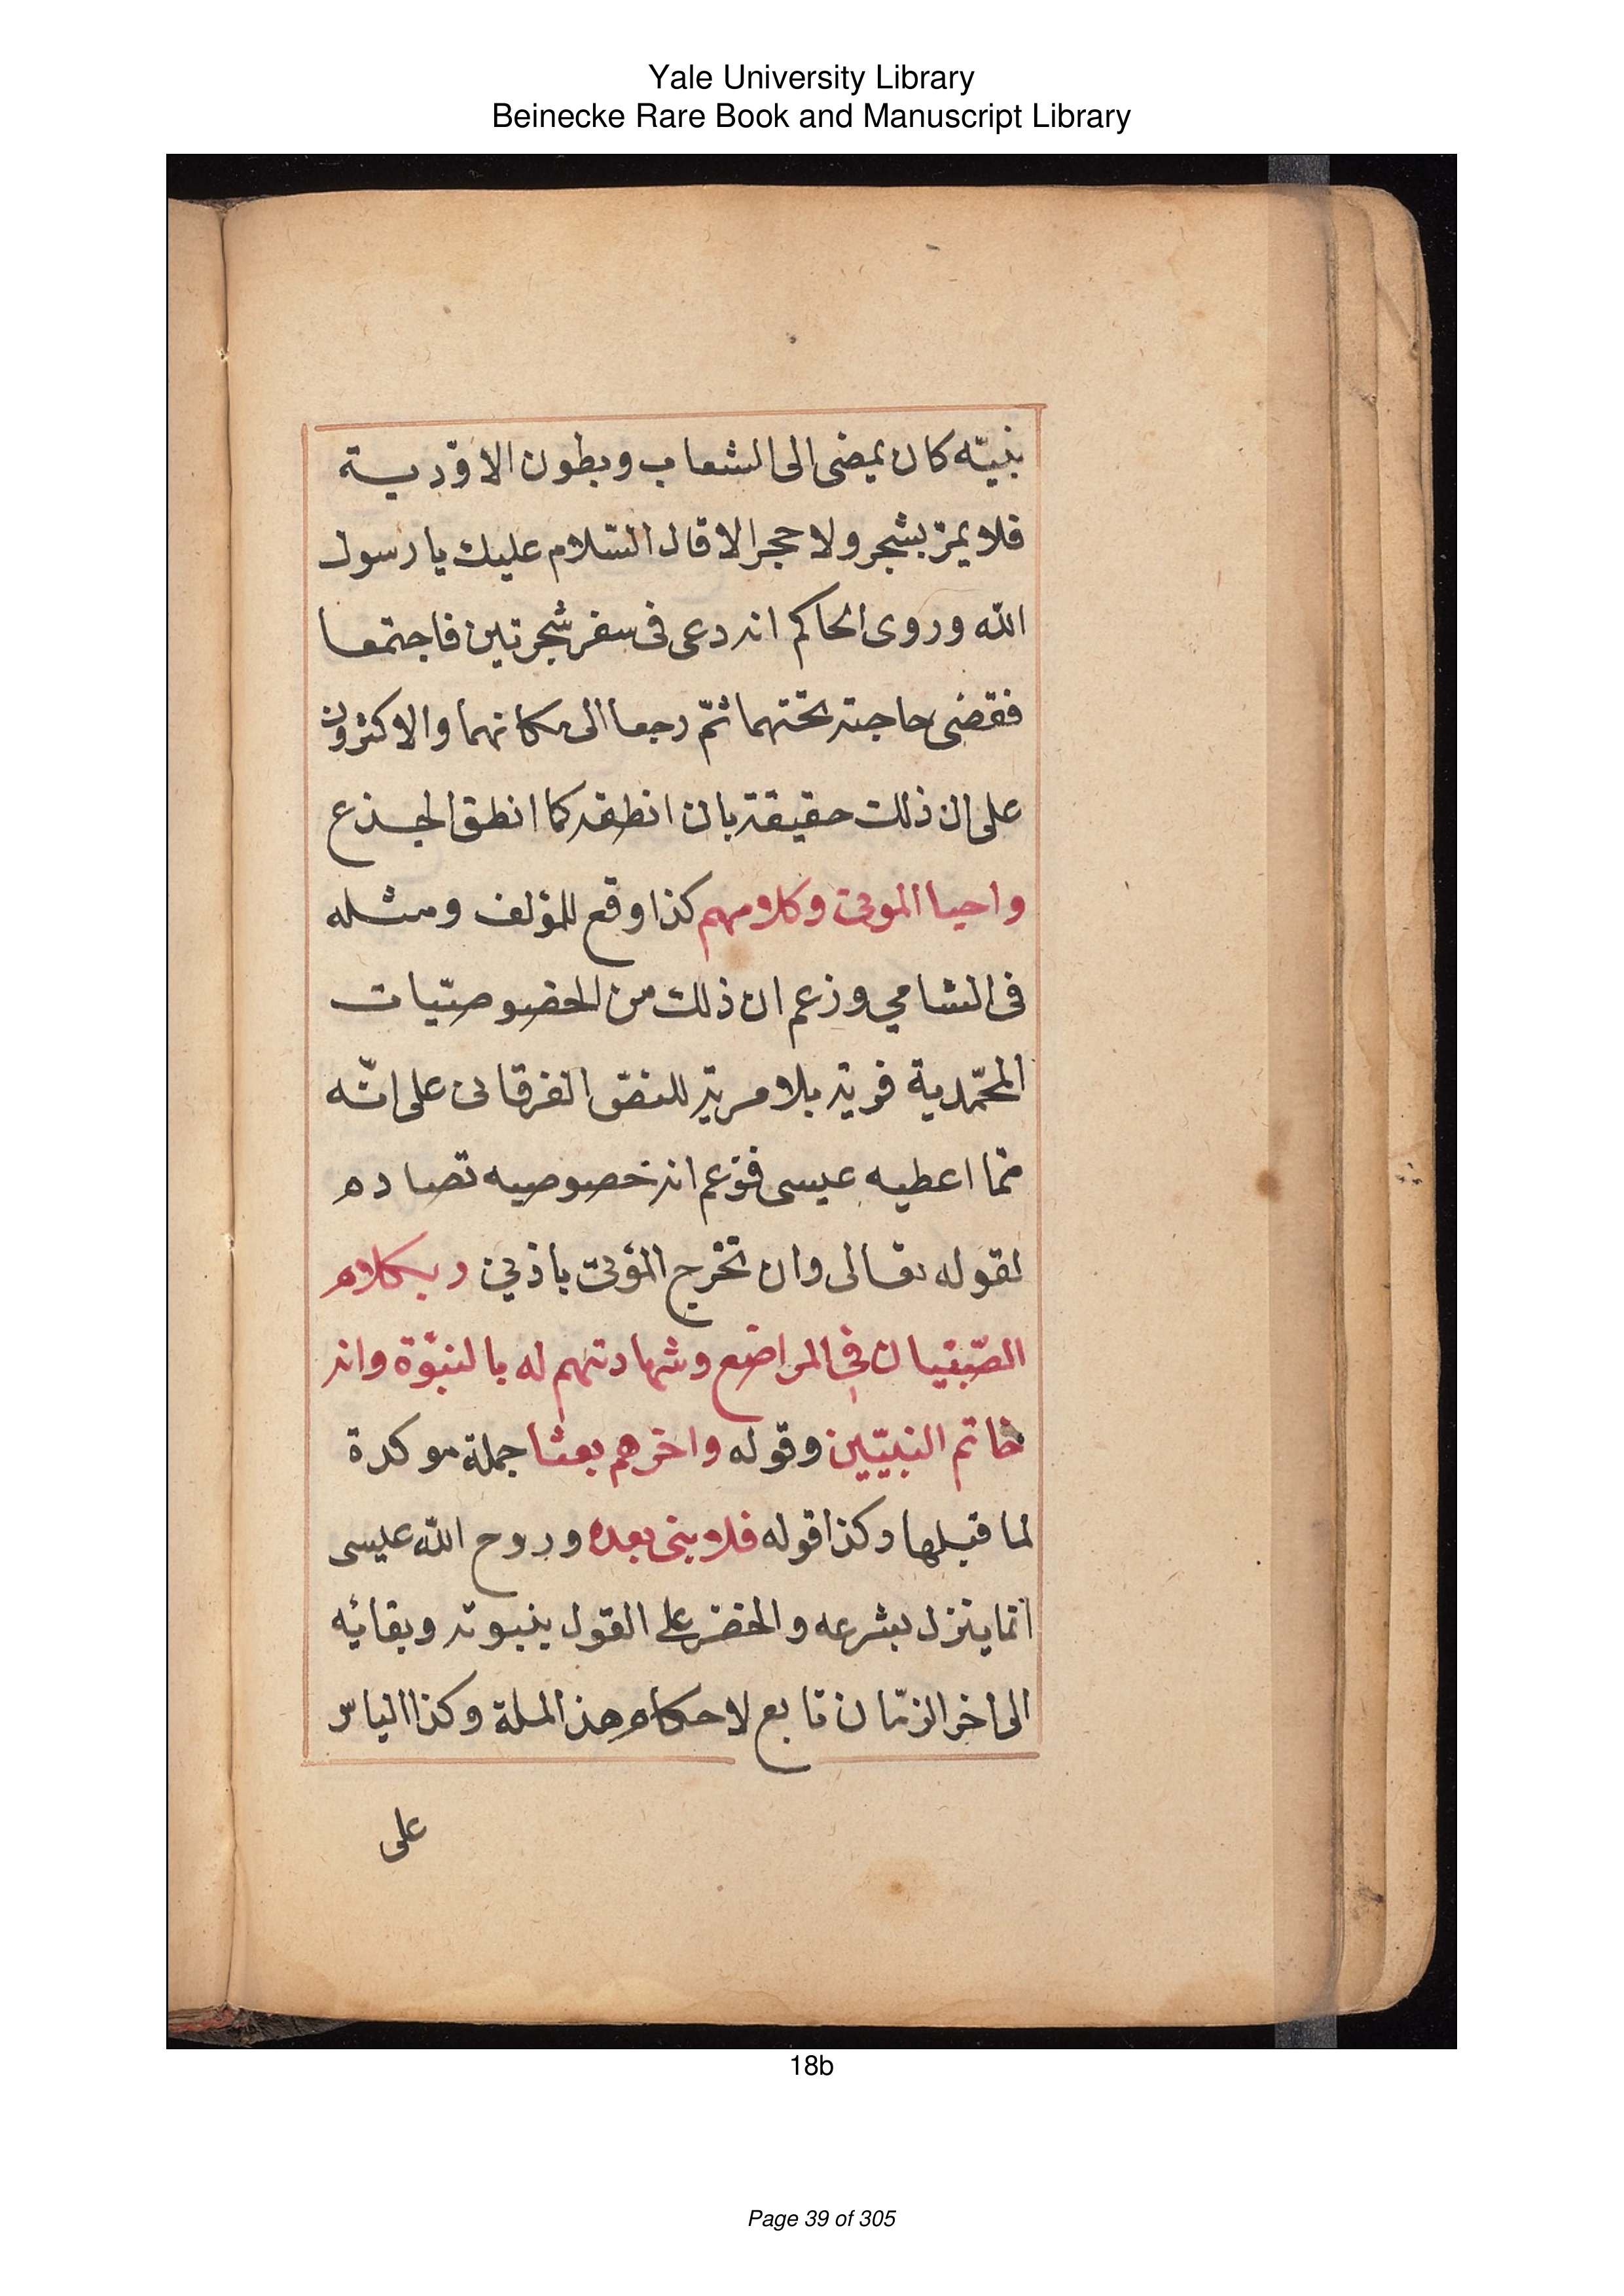 Yale University Library
Beinecke Rare Book and Manuscript Library
نبيّه كان يمضى الى الشعاب وبطون الاوّدية
فلا يمرّ بشجر ولا حجر الا قال السّلام عليك يا رسول
اللّه وروى الحاكم انه دعى فى سفر شجرتين فاجتمعا
فقضى حاجته تحتهما ثمّ رجعا الى مكانهما والاكثرون
على ان ذلك حقيقة بان انطقه كما انطق الجذع
واحيا الموتى وكلامهم كذا وقع للمؤلف ومثله
فى الشامي وزعم ان ذلك من الخصوصيّات
المحمّدية فرية بلا مرية للنصّ الفرقانى على انّه
ممّا اعطيه عيسى فزعم انه خصوصيه تصاده
لقوله تعالى وان تخرج المؤتىّ باذني وبكلام
الصّبيان في المراضع وشهادتهم له بالنبوّة وانه
خاتم النبيّين وقوله واخرهم بعثا جملة موكدة
لما قبلها وكذا قوله فلا نبى بعده وروح اللّه عيسى
انما ينزل بشرعه والخضر على القول بنبوته وبقائه
الى اخر الزمّان تابع لاحكام هذ الملة وكذا الياس
على
18b
Page 39 of 305